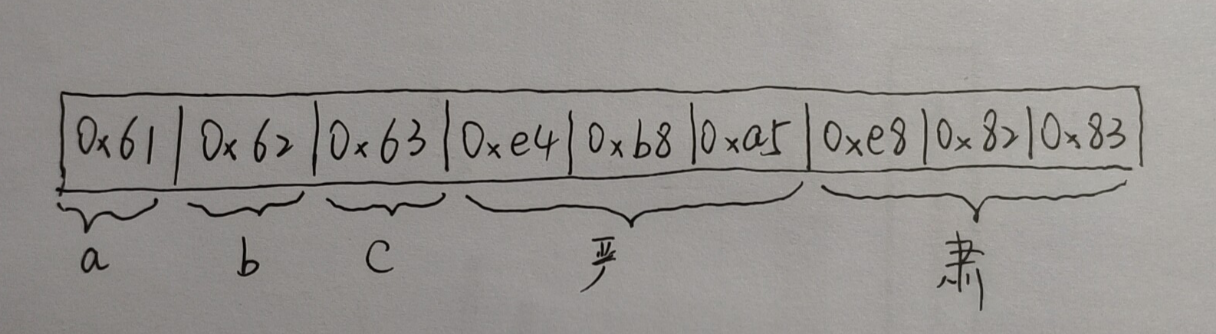 0x61 0x62 0x63 0xe4 0xb8 0xa5 0xe8 0x82 0x83
a b c 严 肃